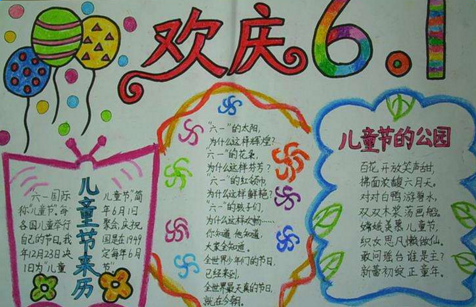 欢庆6.1
儿童节来历
"六一"国际
称儿童节,每
各国儿童举行
自己的节日,我
年12月23日决
日为"儿童
儿童节,简
年6月1日
聚会,庆祝
国是在1949
定每年6月
"六一"的太阳,
为什么这样辉煌?
"六一"的花朵,
为什么这样芬芳?
"六一"的红领巾
为什么这样鲜艳?
"六一"的孩子们,
为什么这样欢畅……
你知道他知道,
大家全知道。
全世界少年们的节日,
已经来到。
全世界最大的节日,
就在今朝。
儿童节的公园
百花开放笑声甜,
拂面浓馥六月天。
对对白鸭游
双双木桨荡画船。
儿童节,
织女思凡懒做仙。
敢问瑶台谁是主?
新蕾初绽正童年。